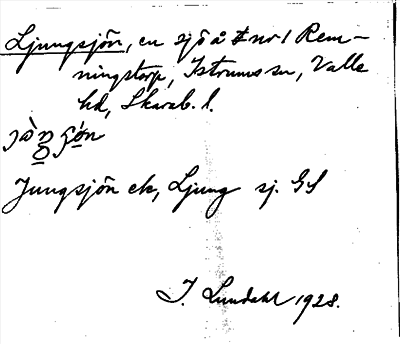 Ljungsjön, en sjö å # nr 1 Rem-
ningstorp, Istrums sn, Valle
hd, Skarab. l.
Jungsjön ek, Ljung sj. GS
I. Lundahl 1928.